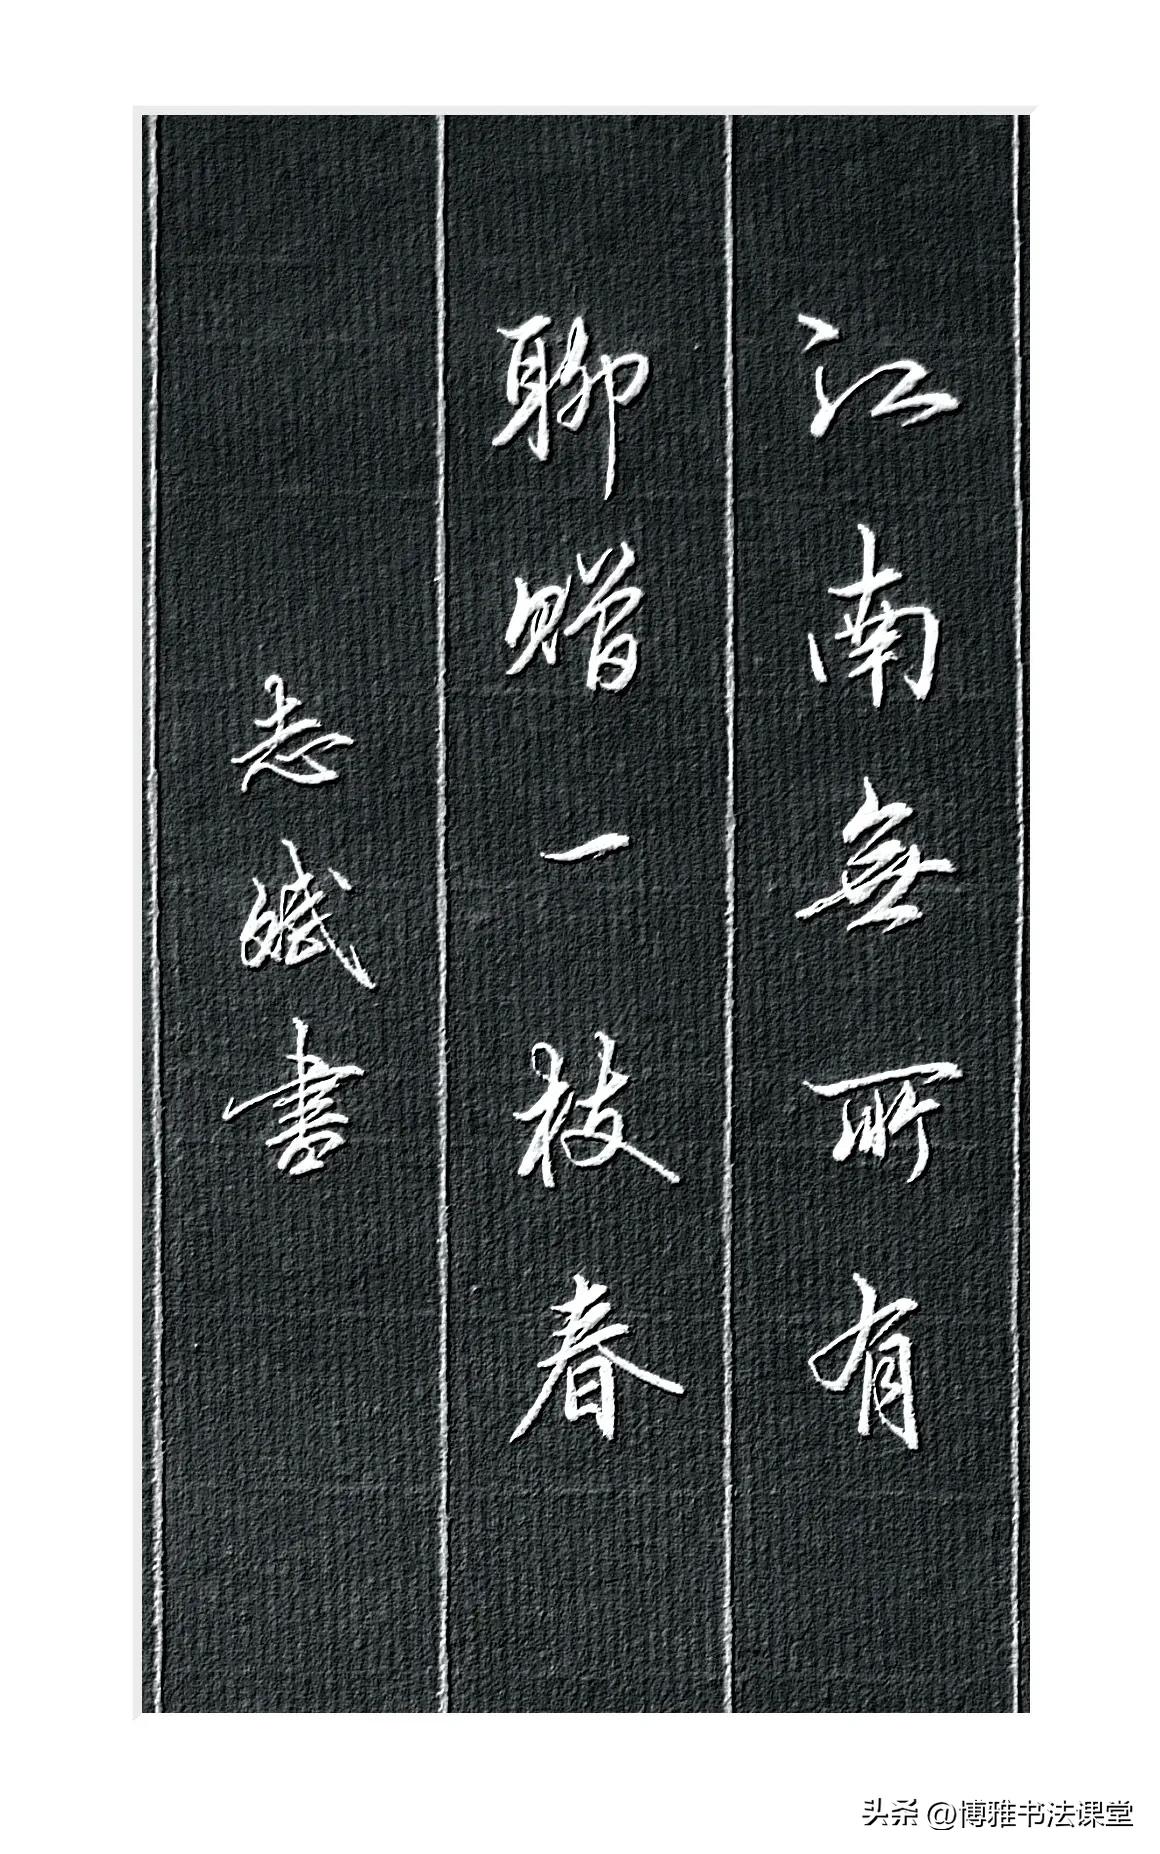 江南無所有
聊贈一枝春
志斌書
头条 @博雅书法课堂